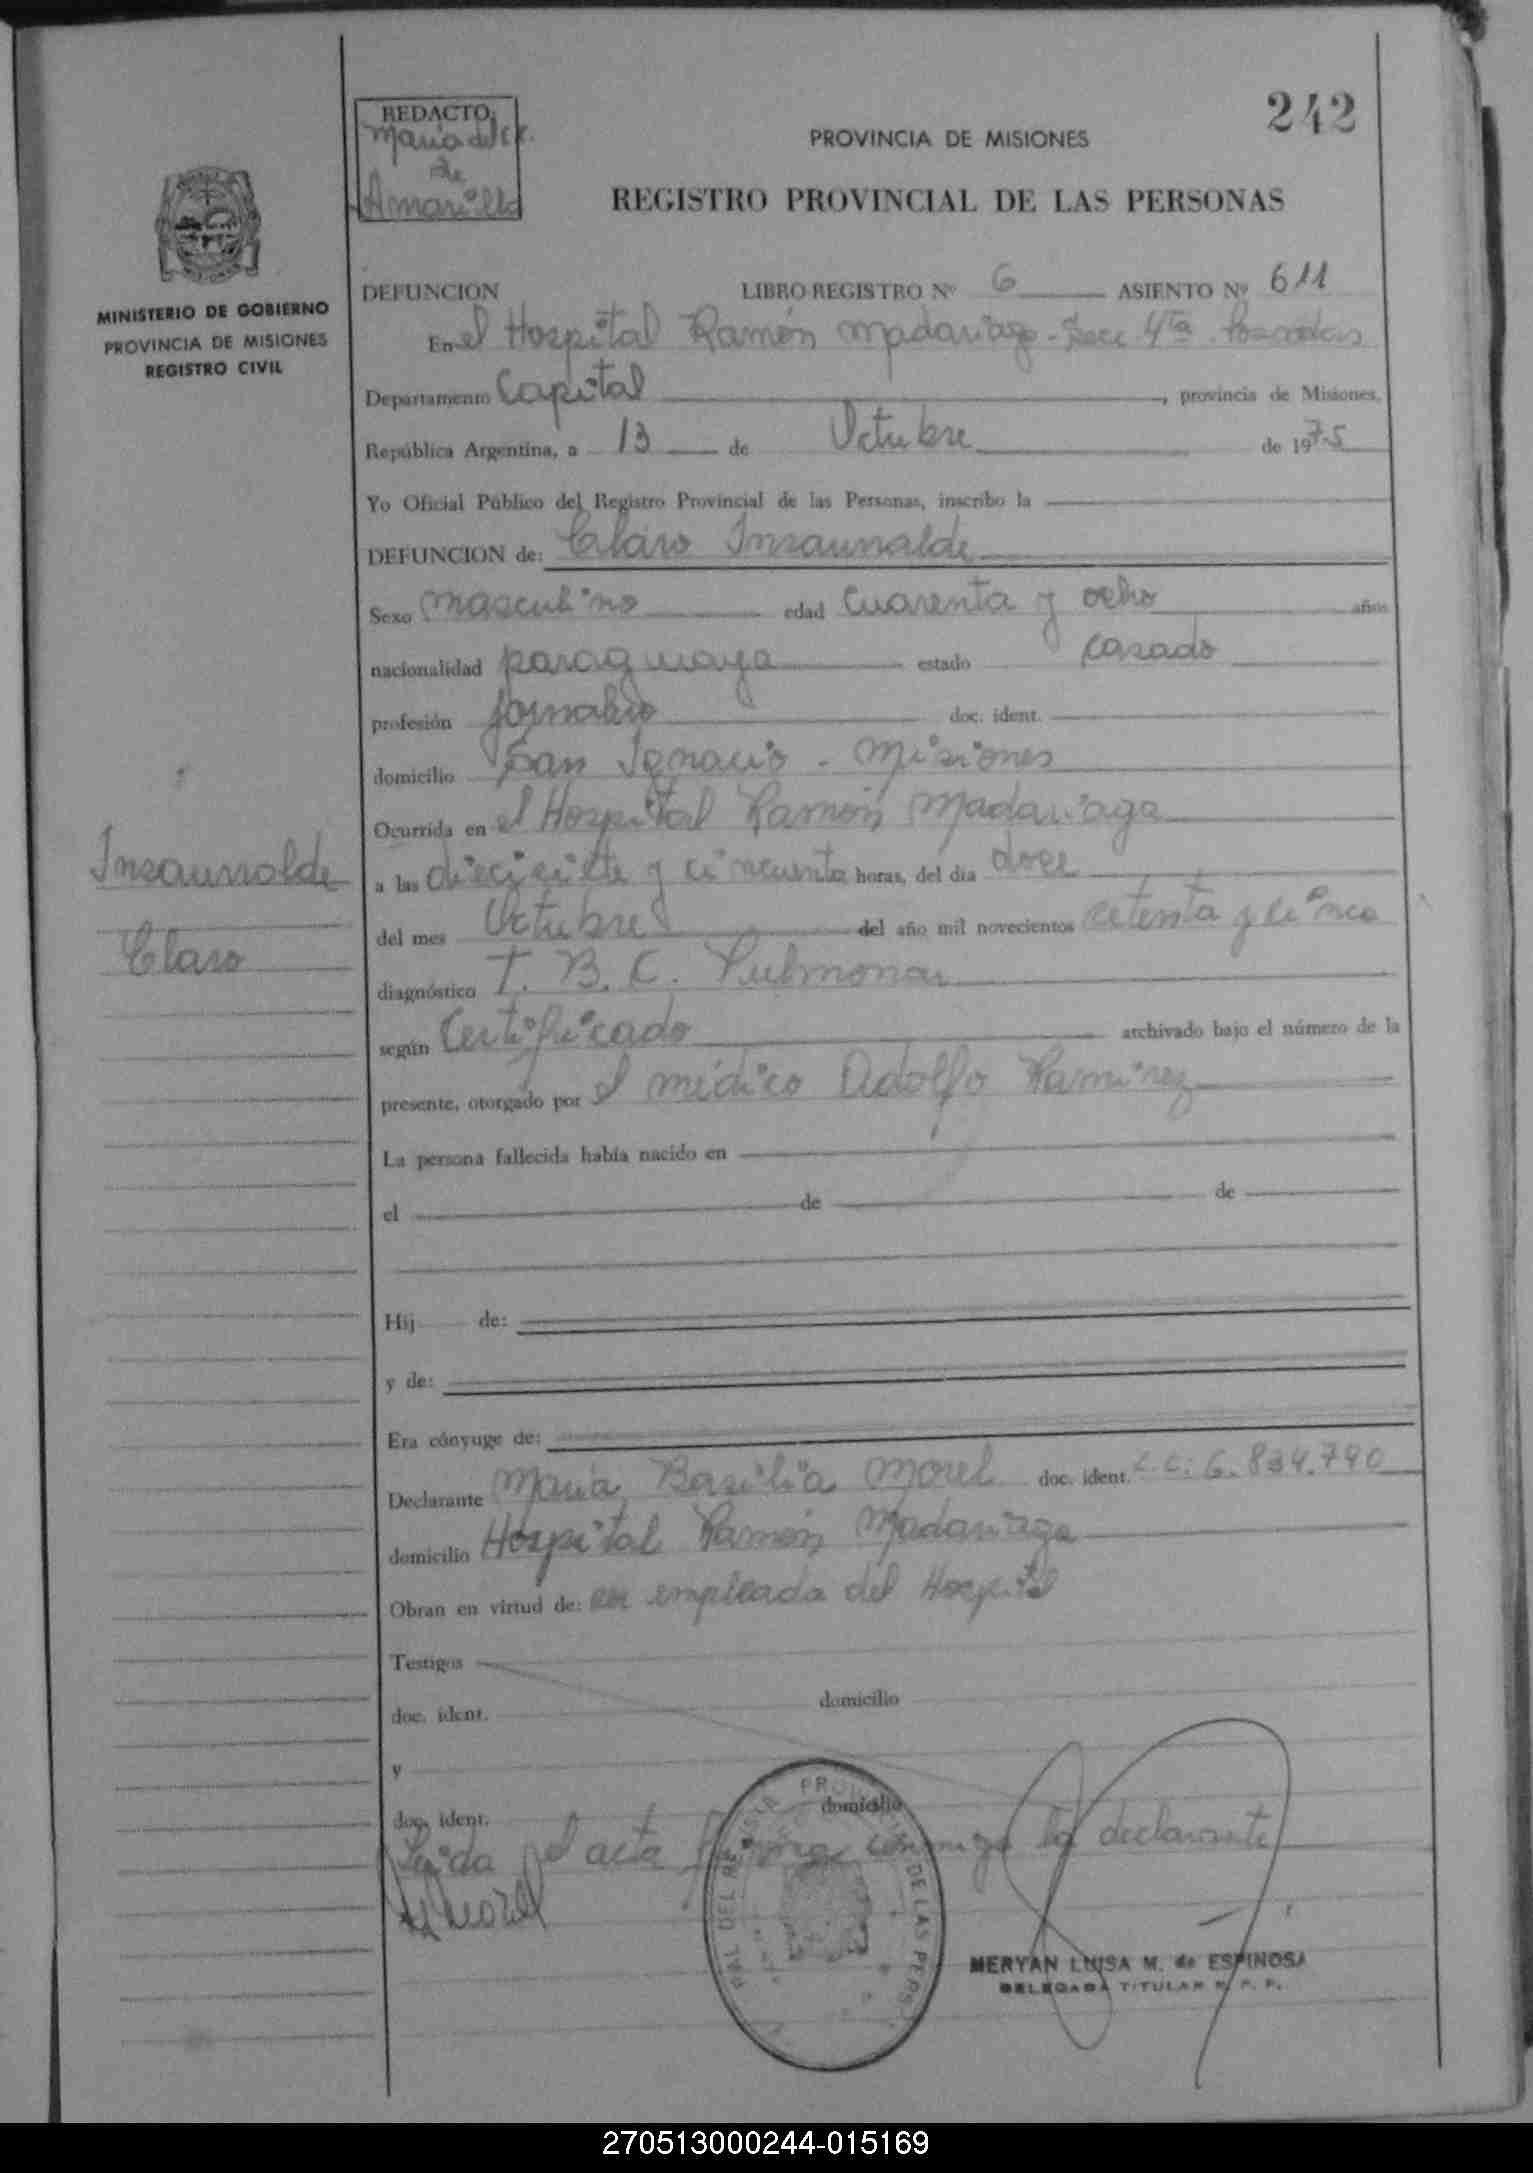 242
REDACTO:
María del C.
de
Amarilla
PROVINCIA DE MISIONES
REGISTRO PROVINCIAL DE LAS PERSONAS
MINISTERIO DE GOBIERNO
PROVINCIA DE MISIONES
REGISTRO CIVIL
DEFUNCION LIBRO REGISTRO Nº 6 ASIENTO Nº 611
En el Hospital Ramón Madariaga - Secc 4ta. Posadas
Departamento Capital, provincia de Misiones,
República Argentina, a 13 de Octubre de 1975
Yo Oficial Público del Registro Provincial de las Personas, inscribo la
DEFUNCION de: Claro Insaurralde
Sexo masculino edad cuarenta y ocho años
nacionalidad paraguaya estado casado
profesión jornalero doc. ident.
domicilio San Ignacio - Misiones
Ocurrida en el Hospital Ramón Madariaga
a las diecisiete y cincuenta horas, del día doce
del mes Octubre del año mil novecientos setenta y cinco
diagnóstico T. B. C. Pulmonar
según Certificado archivado bajo el número de la
presente, otorgado por el médico Adolfo Ramírez
La persona fallecida había nacido en
el de de
Hij de:
y de:
Era cónyuge de:
Declarante María Basilia Morel doc. ident. L.C: 6.834.790
domicilio Hospital Ramón Madariaga
Obran en virtud de: ser empleada del Hospital
Testigos
doc. ident. domicilio
y
doc. ident. domicilio
Leída el acta firma conmigo la declarante
Morel
Insaurralde
Claro
DE LAS PERS
MERYAN LUISA M. de ESPINOSA
DELEGADA TITULAR R. P. P.
270513000244-015169